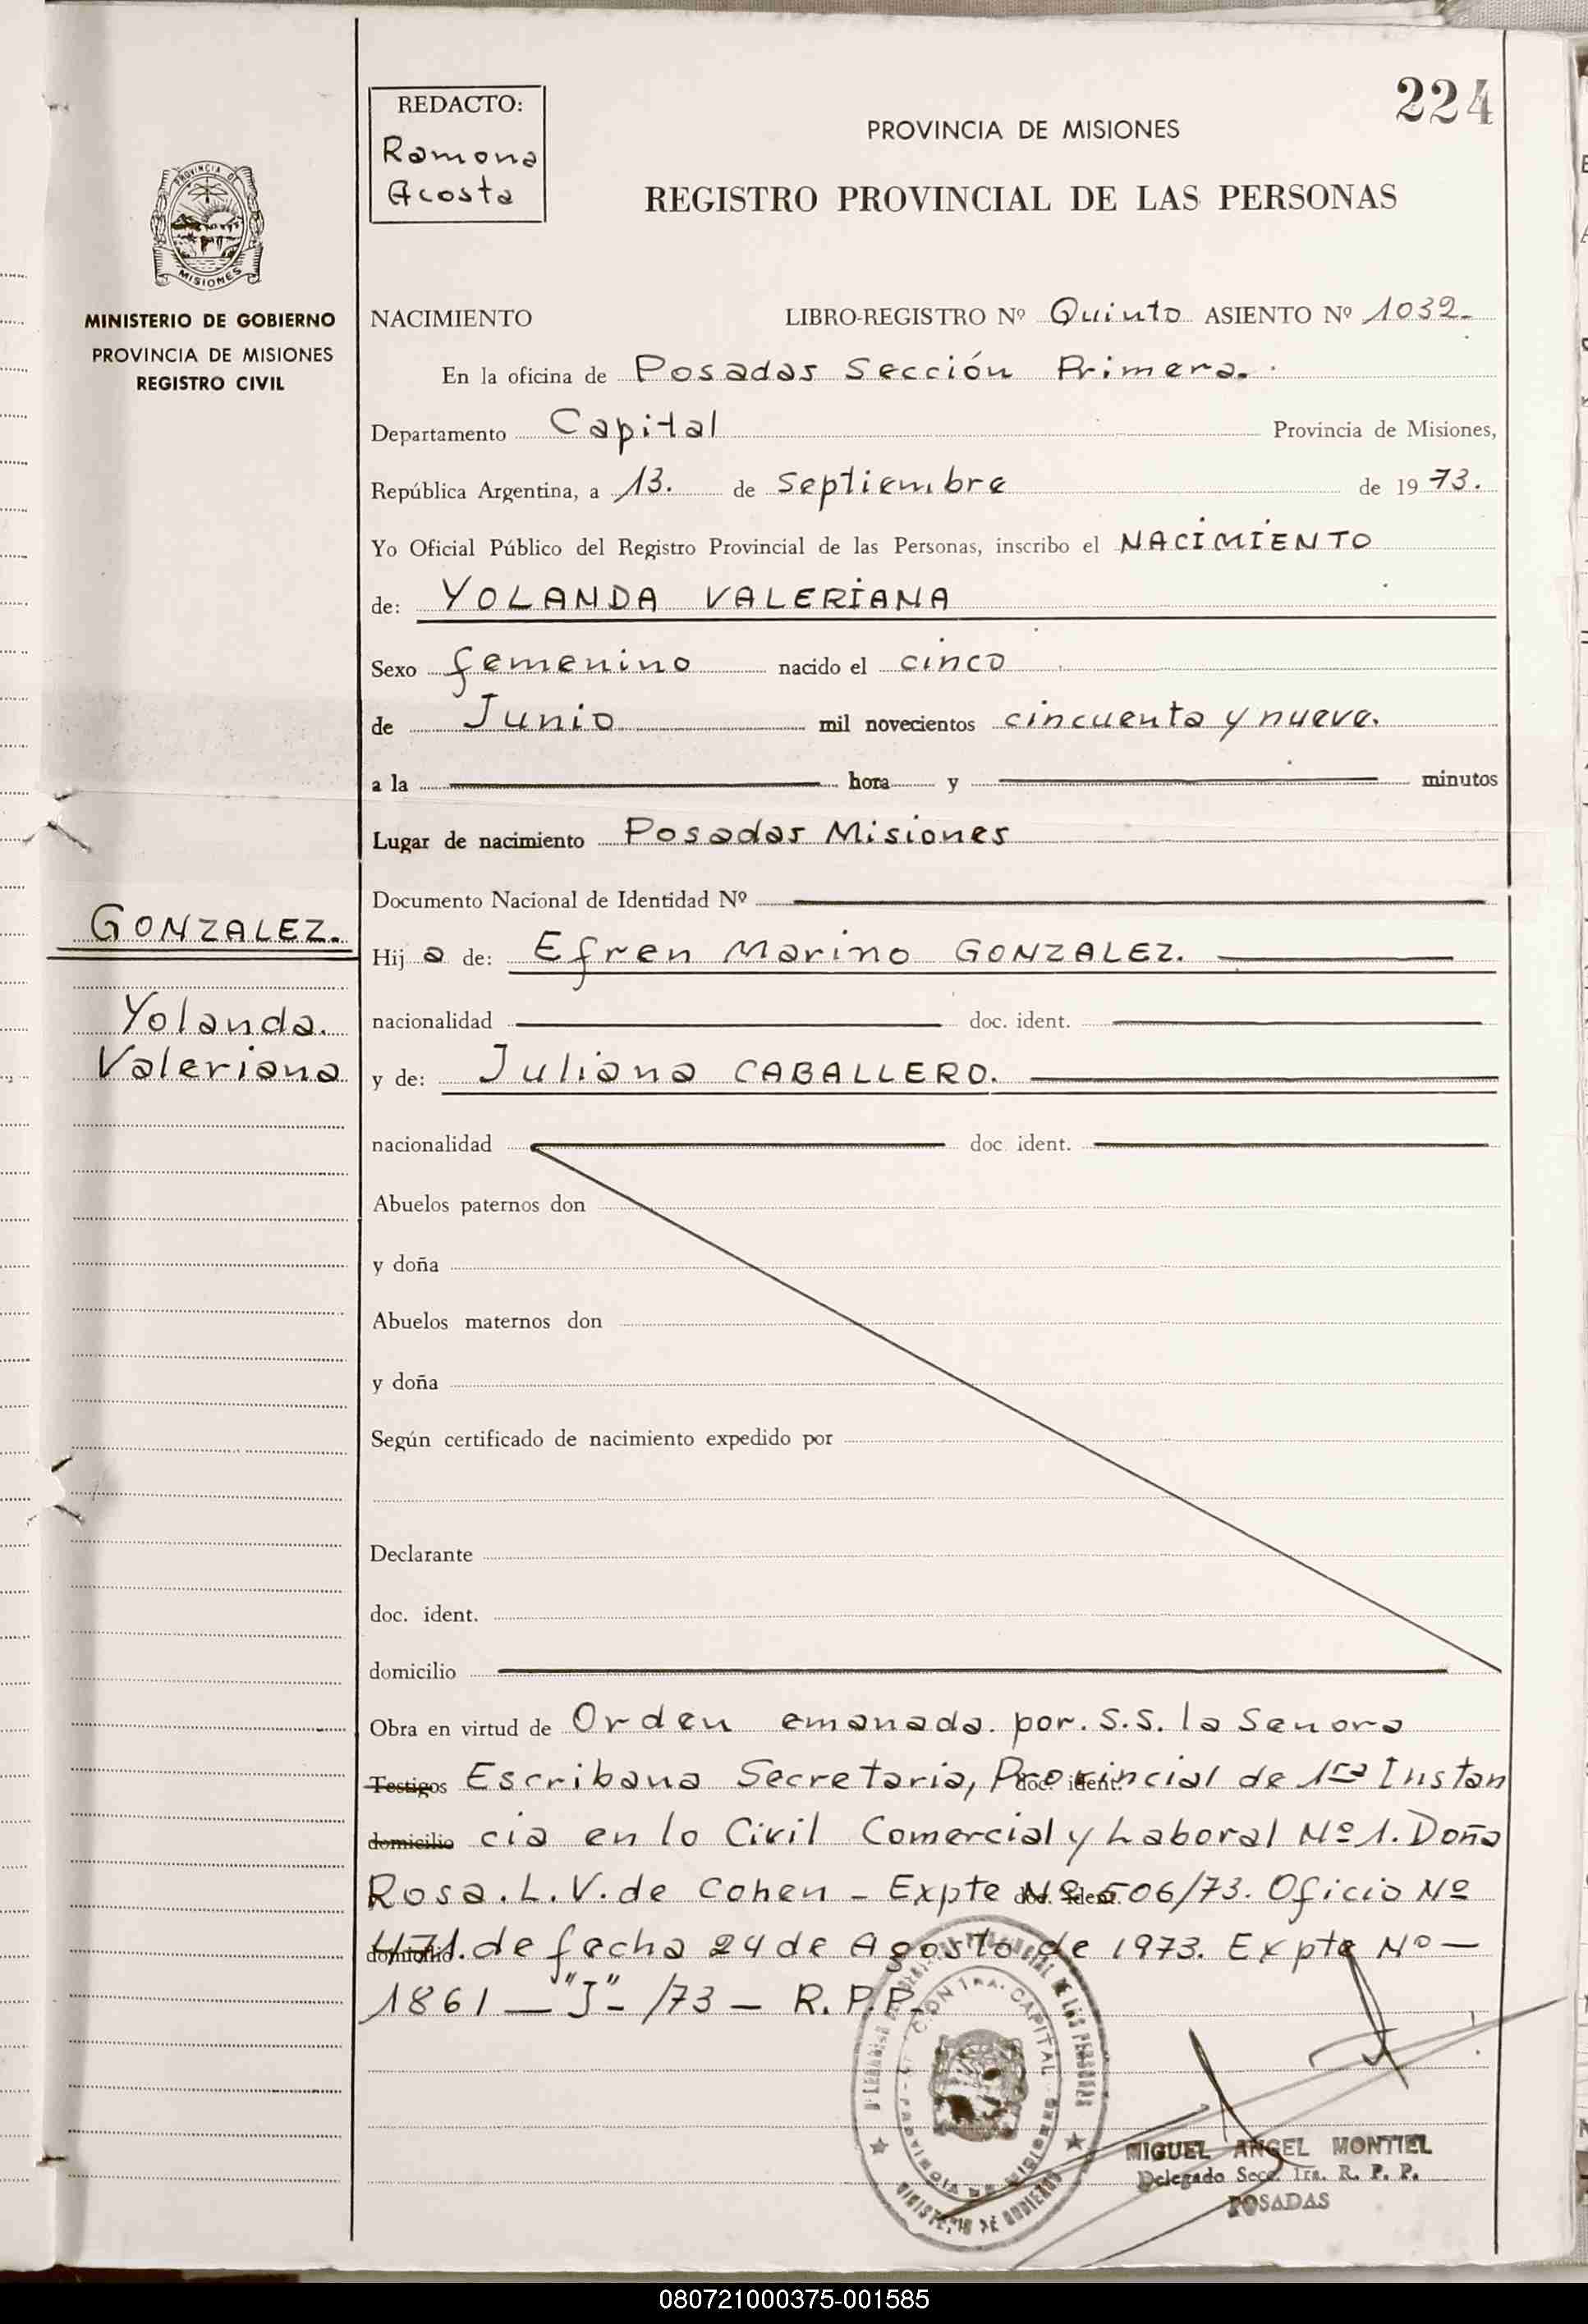 224
REDACTO:
Ramona
Acosta
PROVINCIA DE MISIONES
REGISTRO PROVINCIAL DE LAS PERSONAS
PROVINCIA DE
MISIONES
MINISTERIO DE GOBIERNO
PROVINCIA DE MISIONES
REGISTRO CIVIL
NACIMIENTO LIBRO-REGISTRO Nº Quinto ASIENTO Nº 1032.
En la oficina de Posadas Sección Primera.
Departamento Capital Provincia de Misiones,
República Argentina, a 13. de septiembre de 1973.
Yo Oficial Público del Registro Provincial de las Personas, inscribo el NACIMIENTO
de: YOLANDA VALERIANA
Sexo femenino nacido el cinco
de Junio mil novecientos cincuenta y nueve.
a la hora y minutos
Lugar de nacimiento Posadas Misiones
Documento Nacional de Identidad Nº
GONZALEZ.
Hija de: Efren Marino GONZALEZ.
Yolanda.
nacionalidad doc. ident.
Valeriana
y de: Juliana CABALLERO.
nacionalidad doc. ident.
Abuelos paternos don
y doña
Abuelos maternos don
y doña
Según certificado de nacimiento expedido por
Declarante
doc. ident.
domicilio
Obra en virtud de Orden emanada. por. S.S. la Senora
Testigos Escribana Secretaria, Provincial de 1ra Instan
doc. ident.
domicilio cia en lo Civil Comercial y Laboral Nº 1. Doña
Rosa. L. V. de Cohen - Expte Nº 506/73. Oficio Nº
doc. ident.
domicilio 471. de fecha 24 de Agosto de 1973. Expte Nº —
1861 — "J" - /73 — R.P.P.
CAPITAL
PROVINCIA DE MISIONES
MINISTERIO DE GOBIERNO
MIGUEL ANGEL MONTIEL
Delegado Secc. 1ra. R. P. P.
POSADAS
080721000375-001585